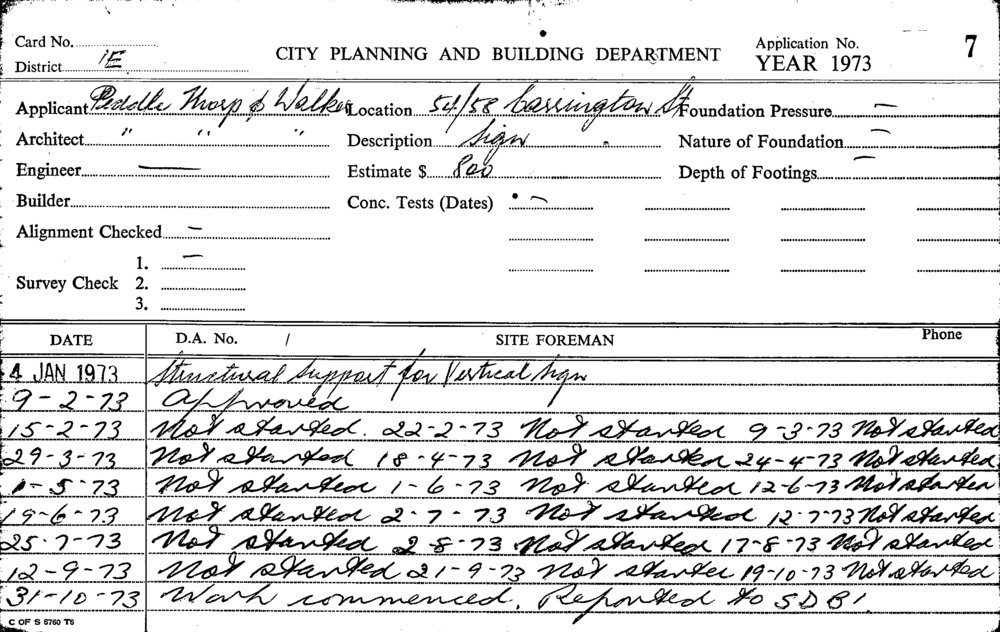 Card No. CITY PLANNING AND BUILDING DEPARTMENT Application No. 7
District 1E YEAR 1973
Applicant Peddle Thorp & Walker Location 54/58 Carrington St Foundation Pressure —
Architect " " " Description Sign Nature of Foundation —
Engineer — Estimate $ 800 Depth of Footings —
Builder Conc. Tests (Dates) —
Alignment Checked —
1. —
Survey Check 2.
3.
DATE D.A. No. / SITE FOREMAN Phone
4 JAN 1973 Structural Support for Vertical Sign
9-2-73 Approved
15-2-73 Not started. 22-2-73 Not started 9-3-73 Not started
29-3-73 Not started 18-4-73 Not started 24-4-73 Not started
1-5-73 Not started 1-6-73 Not started 12-6-73 Not started
19-6-73 Not started 2-7-73 Not started 12-7-73 Not started
25-7-73 Not started 2-8-73 Not started 17-8-73 Not started
12-9-73 Not started 21-9-73 Not started 19-10-73 Not started
31-10-73 Work commenced. Reported to SDBI
C OF S 6760 T6